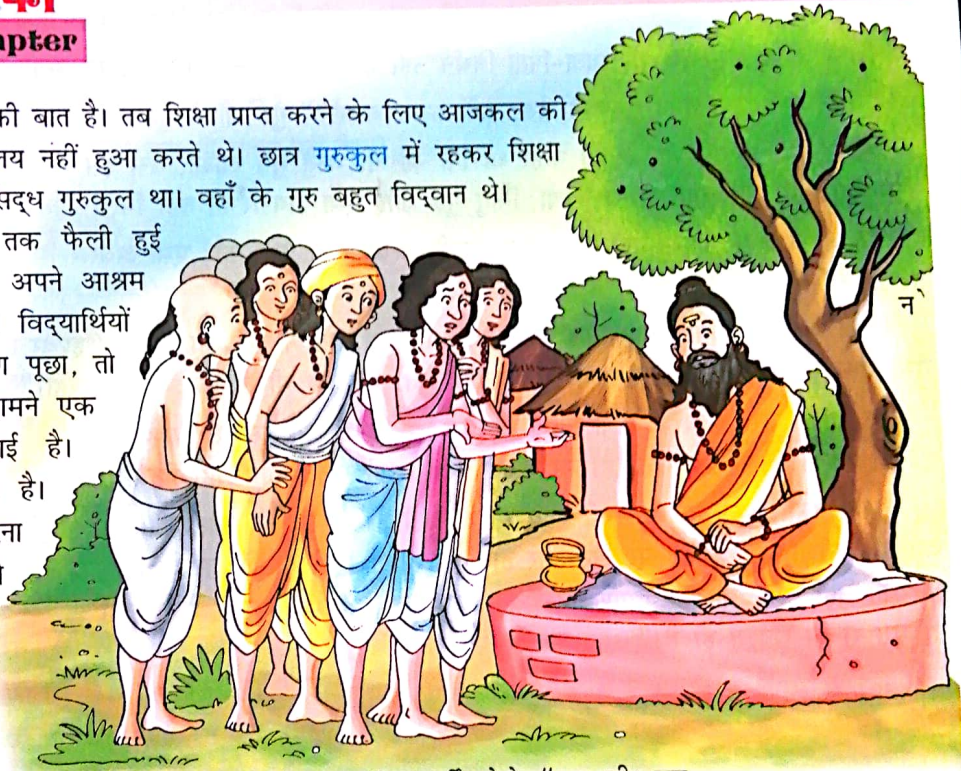 apter
की बात है। तब शिक्षा प्राप्त करने के लिए आजकल की
नय नहीं हुआ करते थे। छात्र गुरुकुल में रहकर शिक्षा
सद्ध गुरुकुल था। वहाँ के गुरु बहुत विद्वान थे।
तक फैली हुई
अपने आश्रम
न
विद्यार्थियों
पूछा, तो
ामने एक
ाई है।
है।
ना